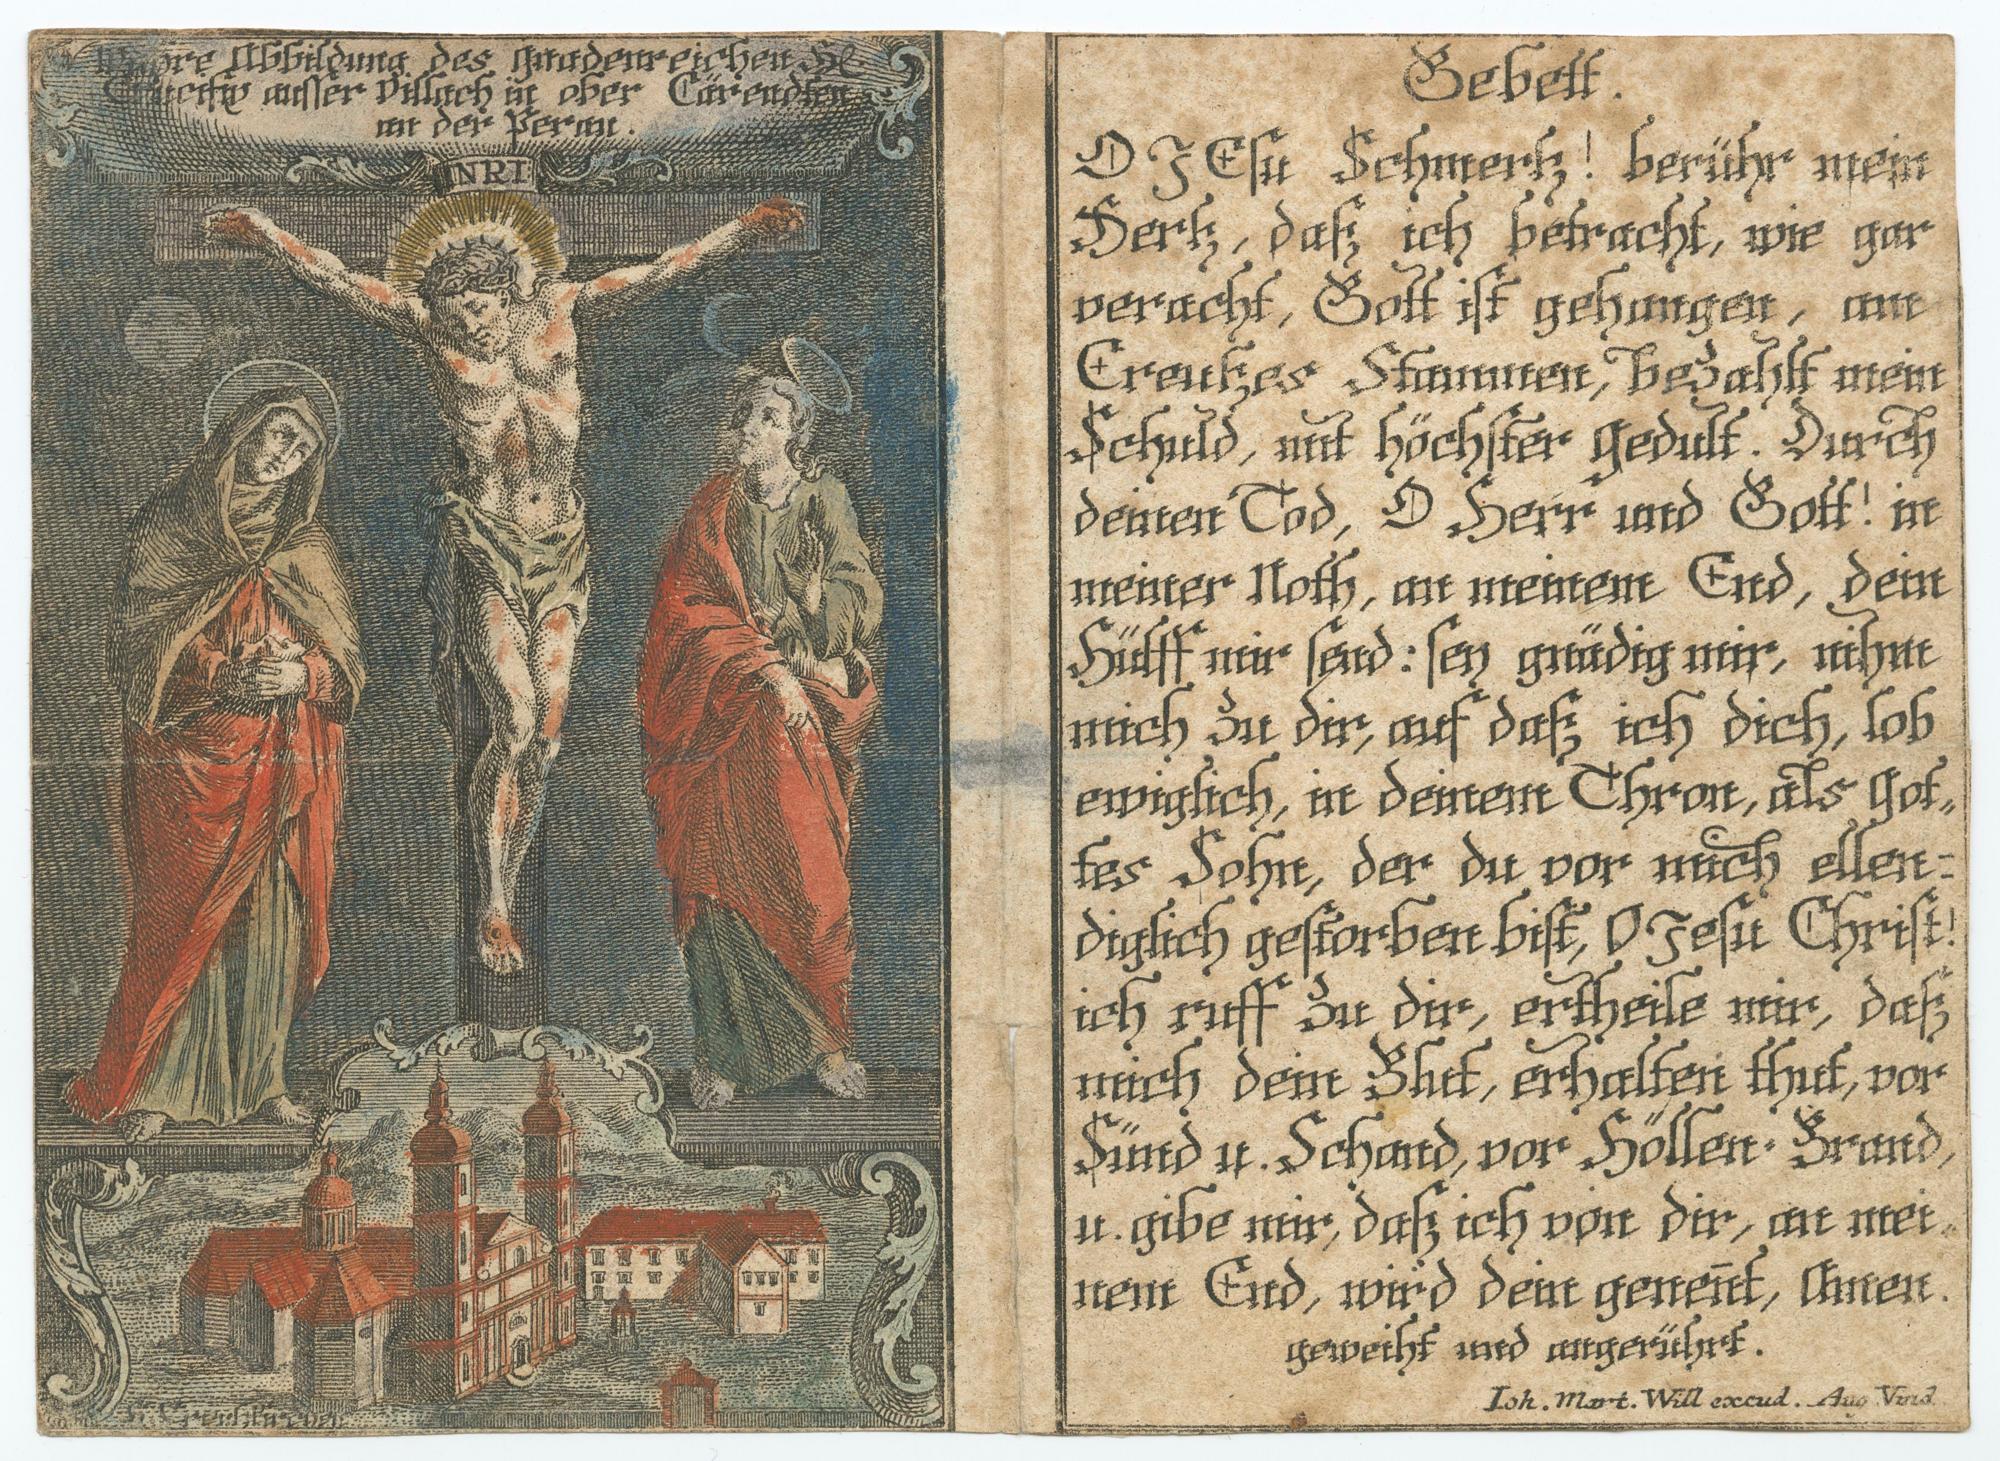 Wahre Abbildung des gnadenreichen Hl.
Crucifix ausser Villach in ober Cärendten
an der Perau.
INRI
Gebett.
O JEsu Schmertz! berühr mein
Hertz, daß ich betracht, wie gar
veracht, Gott ist gehangen, am
Creutzes Stammen, bezahlt mein
Schuld, mit höchster gedult. Durch
deinen Tod, O Herr und Gott! in
meiner Noth, an meinem End, dein
Hülff mir send: sey gnädig mir, nihm
mich zu dir, auf daß ich dich, lob
ewiglich, in deinem Thron, als got„
tes Sohn, der du vor mich ellen=
diglich gestorben bist, O Jesu Christ!
ich ruff zu dir, ertheile mir, daß
mich dein Blut, erhalten thut, vor
Sünd u. Schand, vor Höllen=Brand,
u. gibe mir, daß ich von dir, an mei„
nem End, wird dein geneñt, Amen.
geweiht und angerührt.
Joh. Mart. Will excud. Aug. Vind.